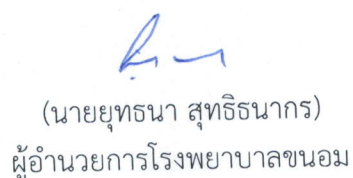 (นายยุทธนา สุทธิธนากร)
ผู้อำนวยการโรงพยาบาลขนอม